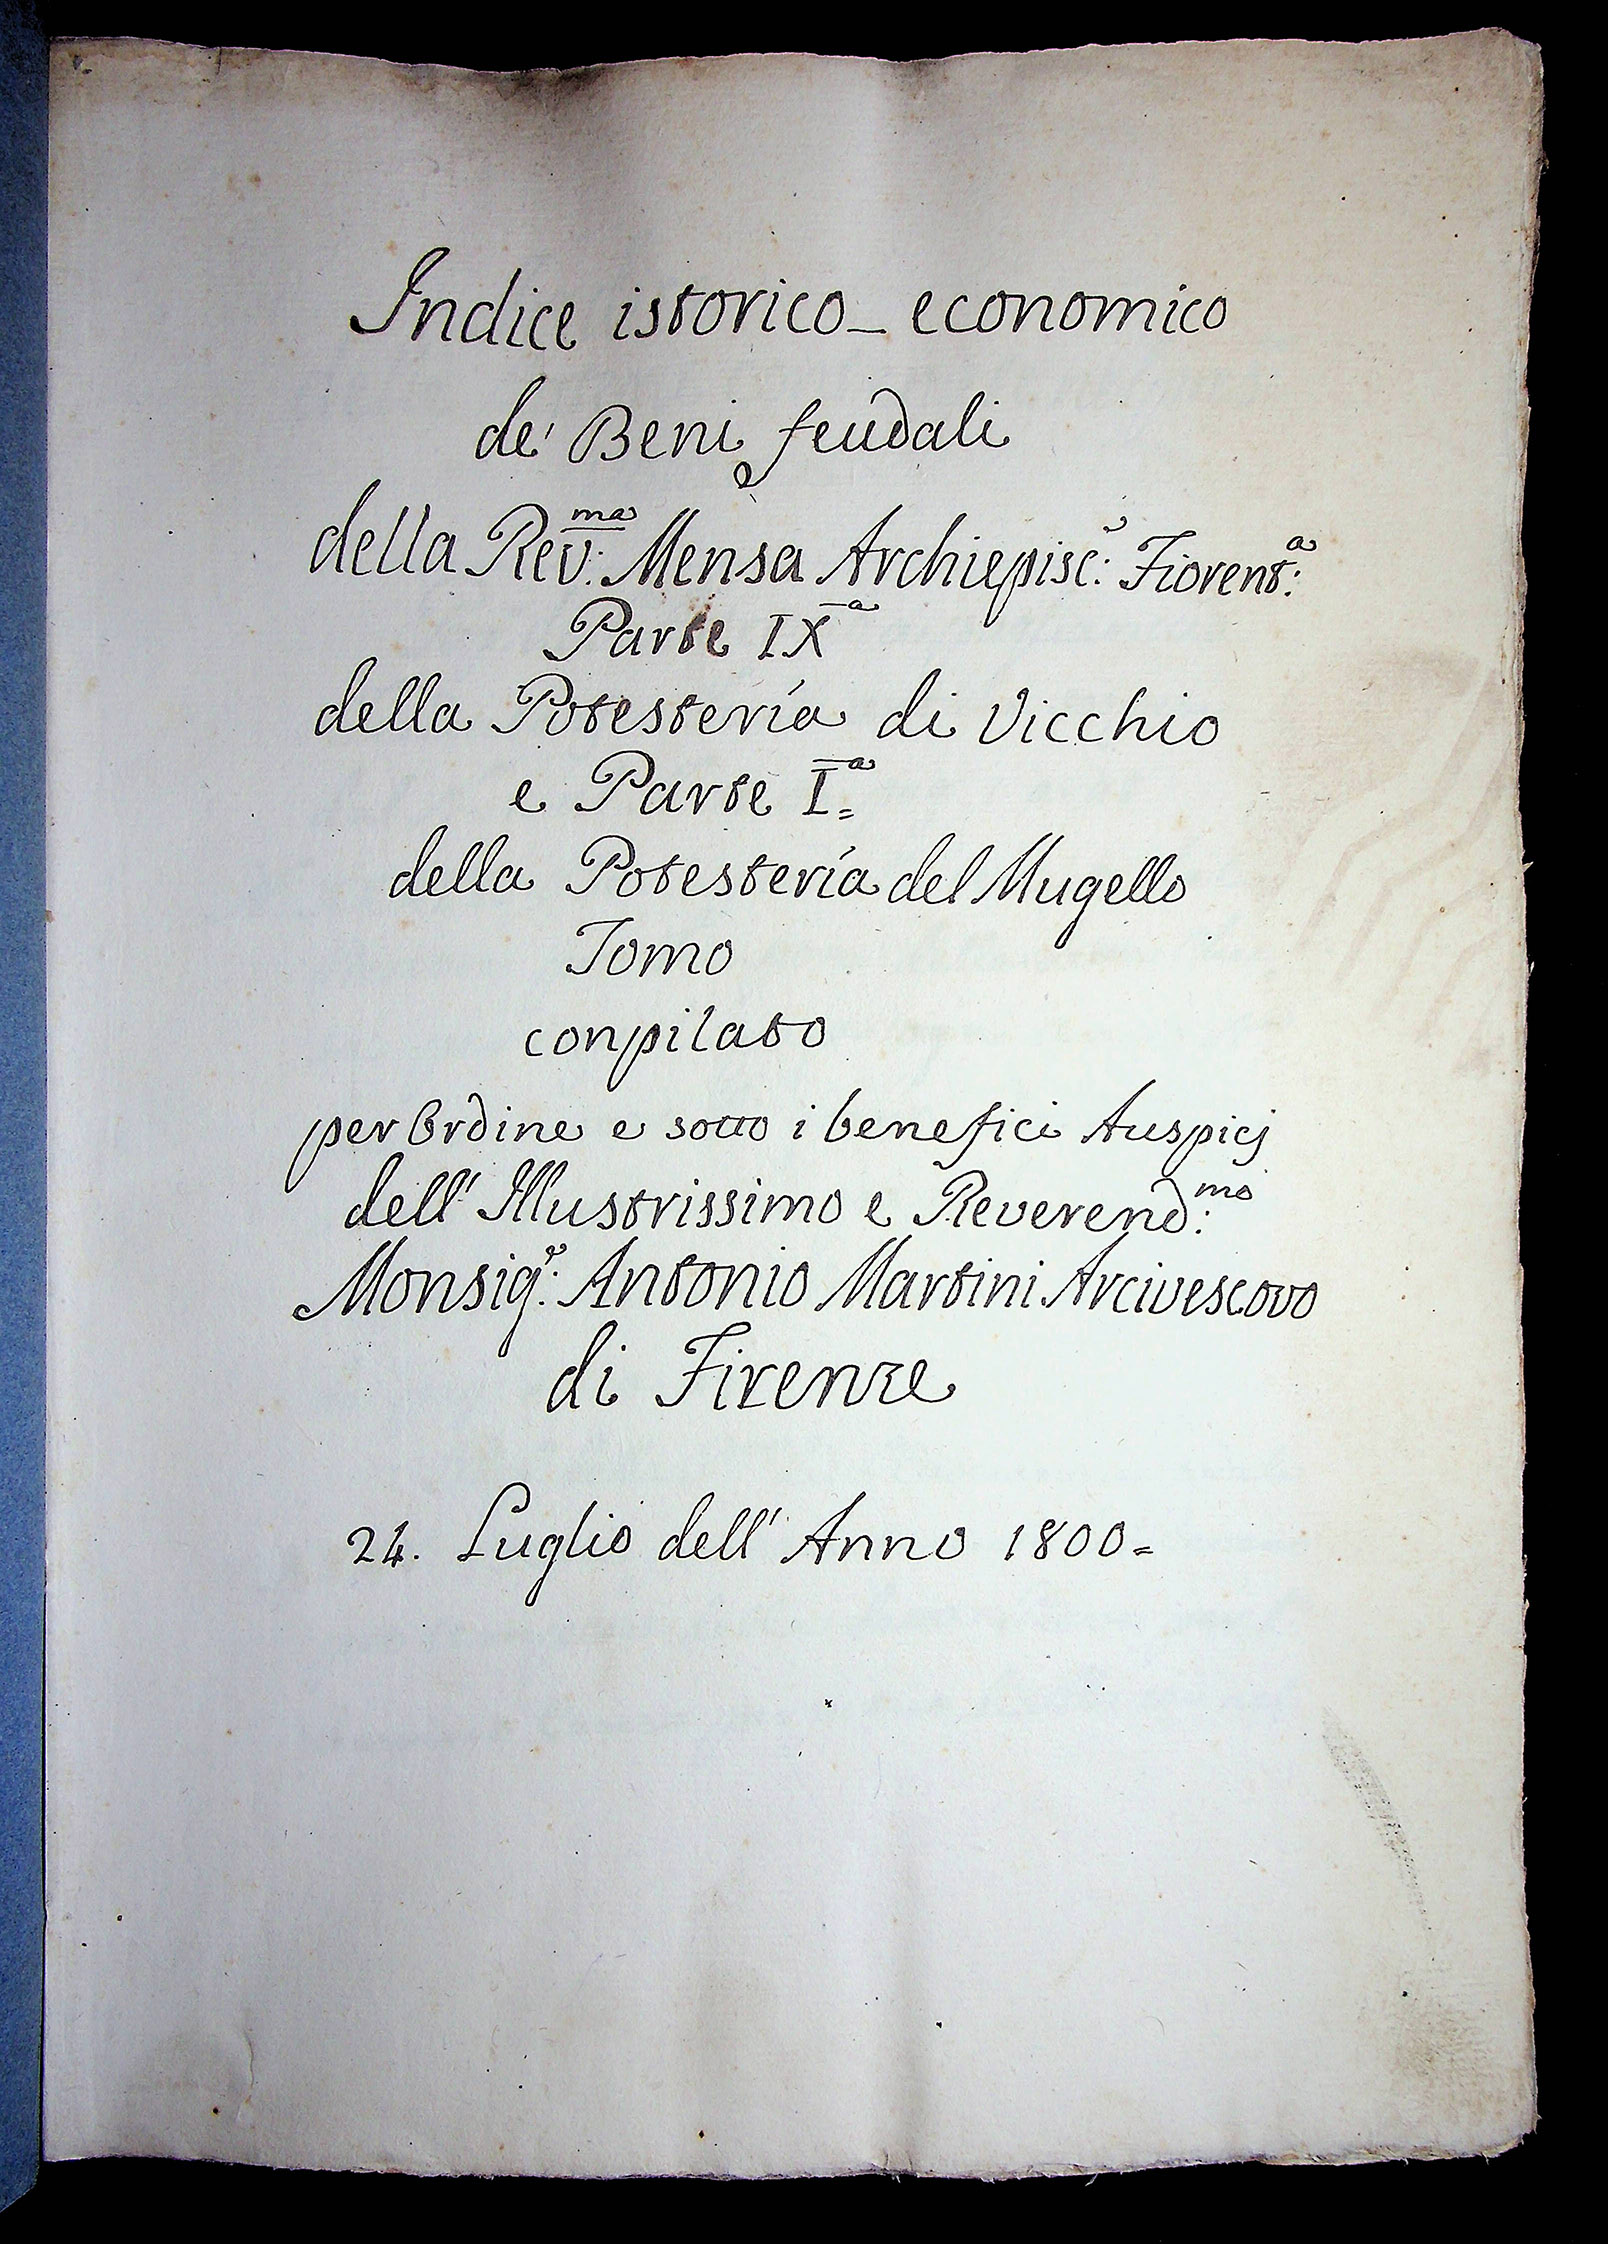 Indice istorico_ economico
de' Beni feudali
della Rev:ma Mensa Archiepisc:e Fiorent:a
Parte IXa
della Potestería di Vicchio
e Parte Ia=
della Potestería del Mugello
Tomo
conpilato
per Ordine e sotto i benefici Auspicj
dell' Illustrissimo e Reverend:mo
Monsig:e Antonio Martini Arcivescovo
di Firenze
24. Luglio dell' Anno 1800=